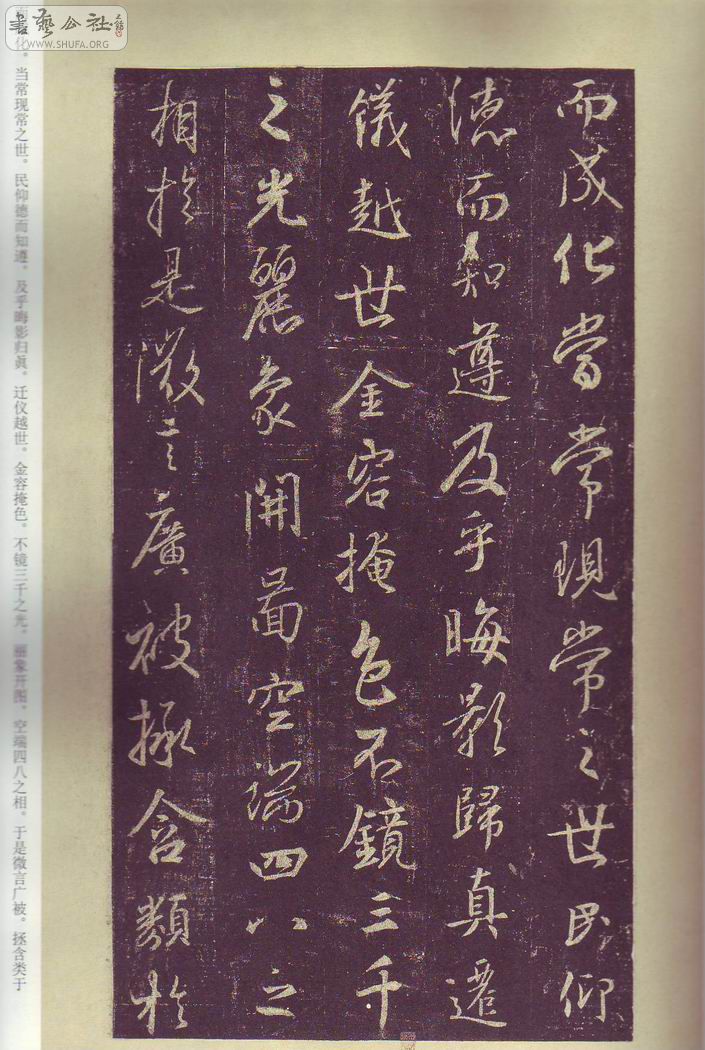 書藝公社
WWW.SHUFA.ORG
而成化當常現常之世民仰
德而知遵及乎晦影歸真遷
儀越世金容掩色不鏡三千
之光麗象開圖空端四八之
相於是微言廣被拯含類於
化。当常现常之世。民仰德而知遵。及乎晦影归真。迁仪越世。金容掩色。不镜三千之光。丽象开图。空端四八之相。于是微言广被。拯含类于